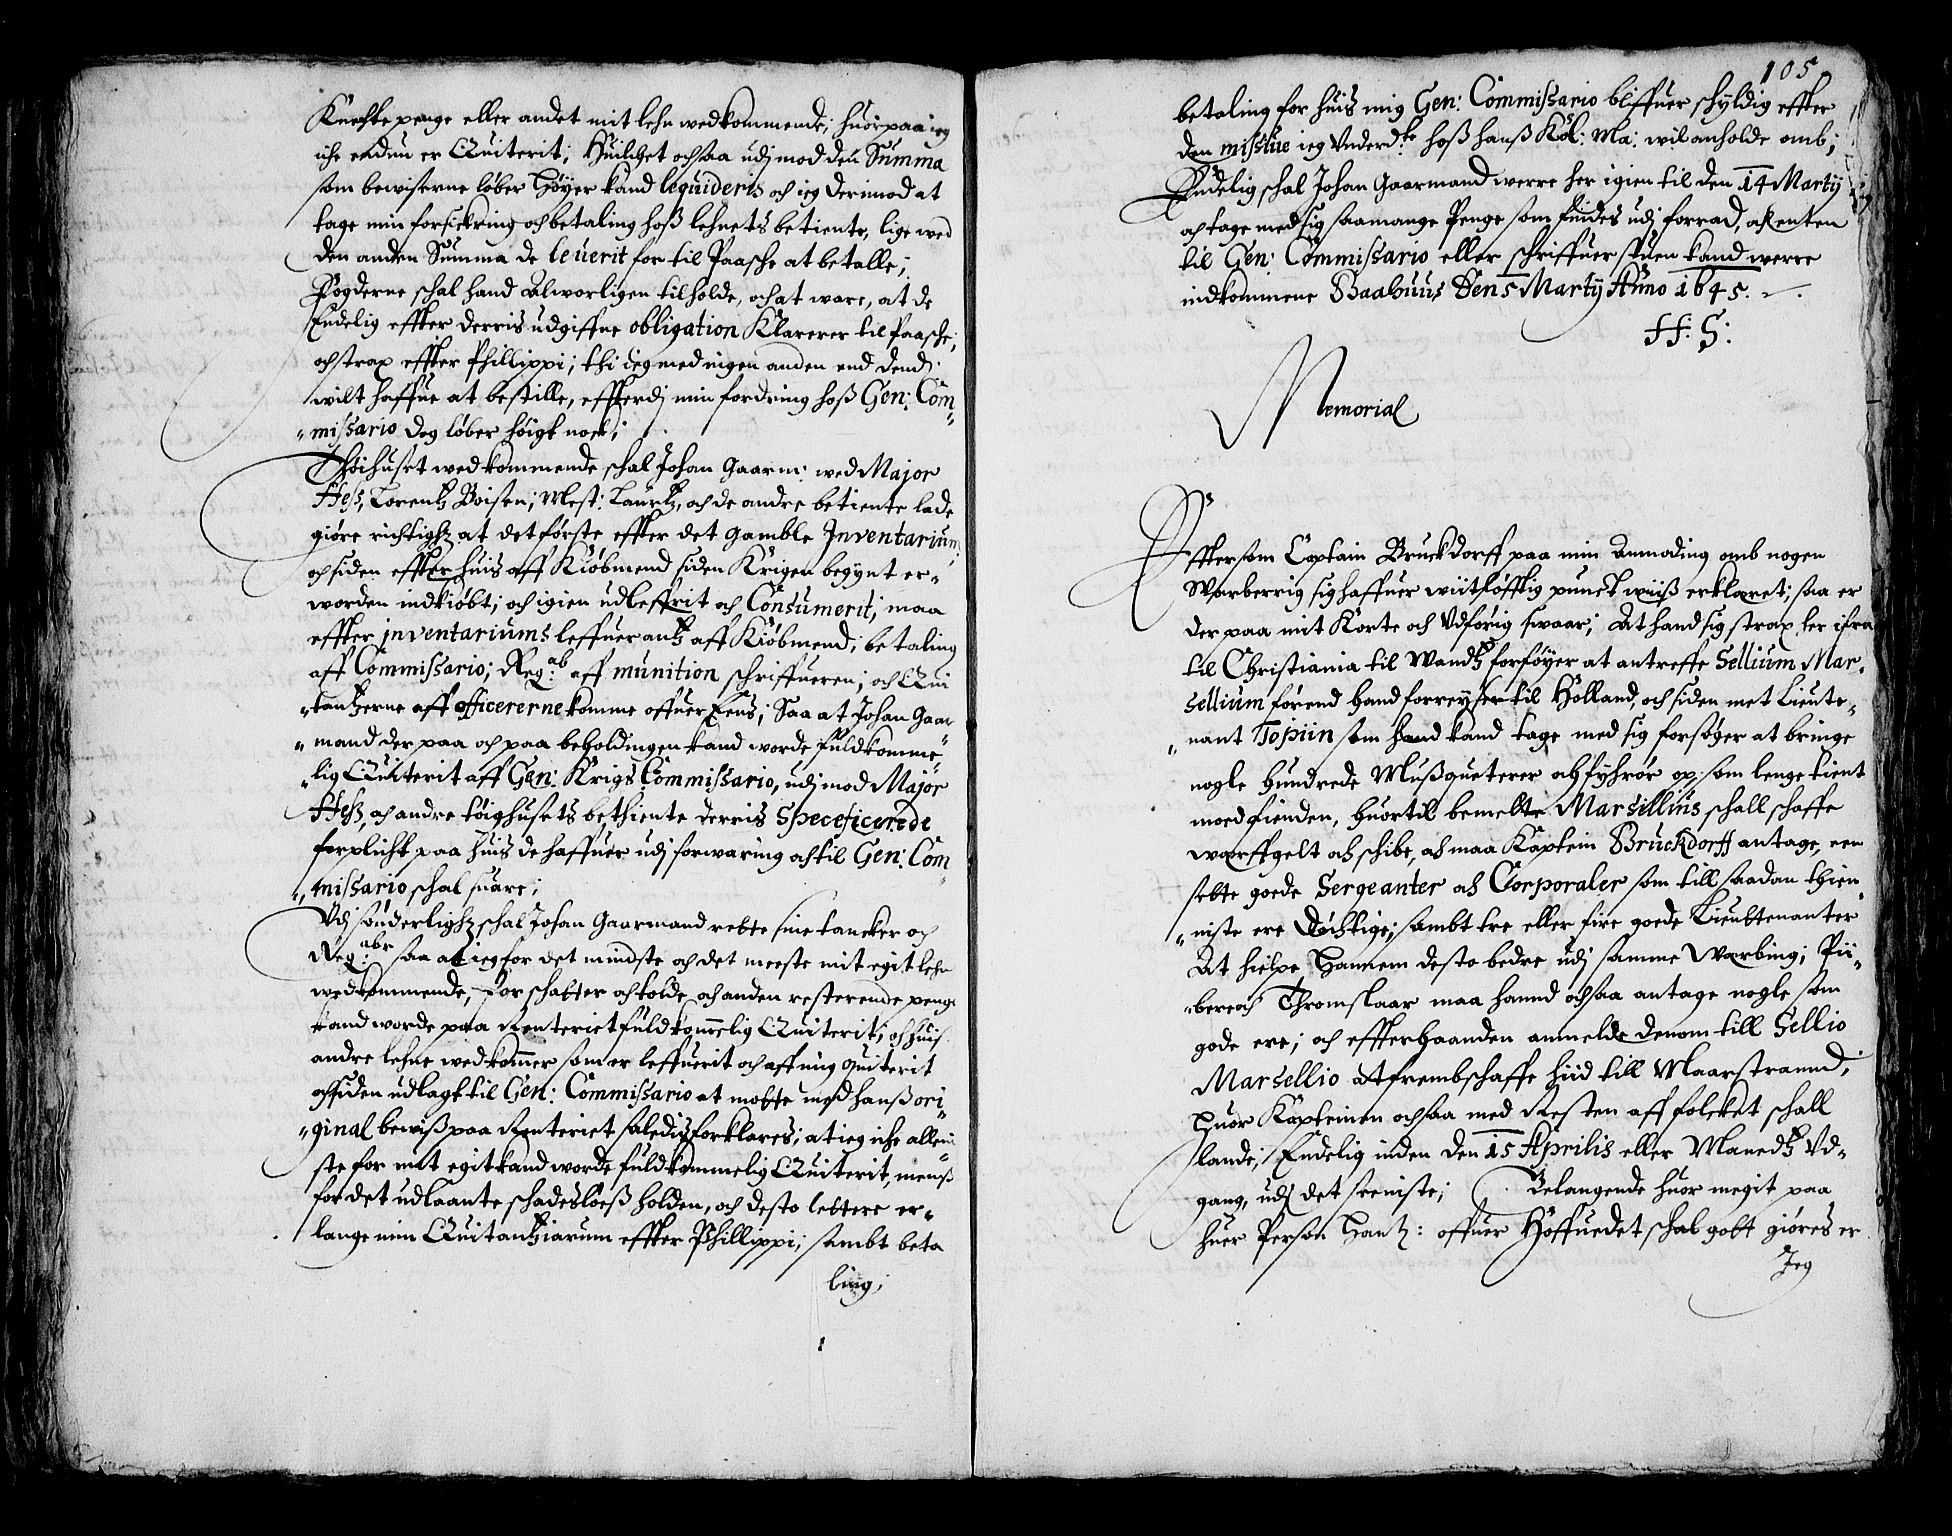 Knechte penge eller andet mit lehn wedkommende; huorpaa ieg
iche endnu er Quiterit; Huilchet ochsaa udj mod den Summa
som bewiserne løber Høyer kand lequideris och ieg derimod at
tage min forsickring och betaling hoß lehnets betiente, lige wed
den anden Summa de leuerit for til Paasche at betalle;
Fogderne schal hand Alworligen tilholde, och at ware, at de
Endelig effter derris udgiffne obligation Klarerer til Paasche,
och strax effter Phillippi; thi ieg med ingen anden end dend
wilt haffue at bestille, effterdj min fordring hoß Gen: Com„
„missario dog løber høigt nock;
Thøihuset wedkommende schal Johan Gaarm: wed Major
Heß, Lorentz Boisen; Mest: Lauritz, och de andre betiente lade
giøre richtighz at det første effter det gamble Inventarium
och siden effter huis aff Kiøbmend siden Krigen begynt er„
worden indkiøbt; och igien udleffrit och Consumerit; maa
effter inventariums leffuerantz aff Kiøbmend; betaling
aff Commissario; Regab: aff munition schriffueren; och Qui
„tantzerne aff officererne komme offuer Eens; Saa at Johan Gaar„
„mand der paa och paa beholdingen kand worde fuldkomme„
„lig Quiterit aff Gen: Krigs Commissario, udj mod Major
Heß, och andre tøighusets bethiente derris Speceficerede
forplicht paa huis de haffuer udj forwaring och til Gen: Com„
„missario schal suare;
Vdj sønderlighz schal Johan Gaarmand rette sine tancker och
Regabr: saa at ieg for det mindste och det meeste mit egit lehn
wedkommende, for schatter och tolde, och anden resterende penge
kand worde paa Renteriet fuldkommelig Quiterit; och huis
andre lehne wedkommer som er leffuerit och aff mig quiterit
och siden udlagt til Gen: Commissario at motte med hanß ori„
„ginal bewiß paa Renteriet saledis forklares; at ieg iche allein„
ste for mit egit kand worde fuldkommelig Quiterit, menß
for det udlaante schadesløeß holden, och desto lettere er„
lange min Quitantziarum effter Phillippi; sambt beta
ling;
105
betaling for huis mig Gen: Commissario bliffuer schyldig effter
den missiue ieg Underd:te hoß hanß Kol: Ma: wil anholde omb;
Endelig schal Johan Gaarmand werre her igien til den 14 Martÿ
och tage med sig saa mange Penge som findes udj forrad, a Renten
til Gen: Commissario eller schriffuerstuen kand werre
indkommene Baahuus Den 5 Martÿ Anno 1645.
H: S:
Memorial
Effter som Captain Bruckdorff paa min Anmoding omb nogen
Warberrig sig haffuer wiitløfftig punct wiiß erklæret; saa er
der paa mit Korte och Udførig swaar; At hand sig strax her ifra
til Christiania til Wandtz forføyer at antreffe Sellium Mar„
sellium førend hand forreyser til Holland, och siden met Lieute„
„nant Topiin som hand kand tage med sig forsøger at bringe
nogle hundrede Mußqueterer och fyhrør op som lenge tient
moed fienden, huortil bemelte Marsillius schall schaffe
warffgelt och schibe, och maa Kaptein Bruckdorff antage, een
sette goede Sergeanter och Corporaler som till saadan thien„
„niste ere Døchtige; sambt tre eller fire goede Lieuttenanter
At hielpe Hannem desto bedre udj samme Warbing; Pii„
„bere och Thromslaar maa hannd ochsaa antage nogle som
gode ere; och effterhaanden anmelde denom till Sellio
Marsellio at frembschaffe hiid till Maarstrannd;
Huor Kapteinen ochsaa med Resten aff folcket schall
lande; Endelig inden den 15 Aprilis eller Manedtz Ud„
gang, udj det seeniste; Belangende huor megit paa
huer Person Hantz: offuer Høffuedet schal gott giøres er
Jeg